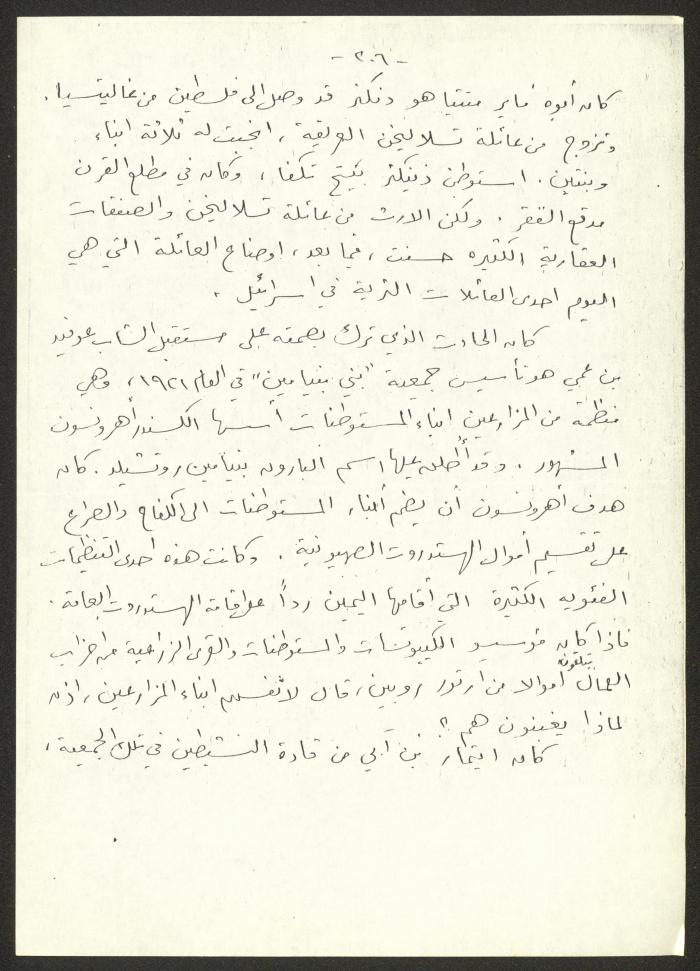 - ٢٠٦ -
كان أبوه مايير متتياهو دنكنر قد وصل الى فلسطين من غاليتسيا.
وتزوج من عائلة تسلاليخن العريقة، انجبت له ثلاثة ابناء
وبنتين. استوطن دنكنر بيتح تكفا، وكان في مطلع القرن
مدقع الفقر. ولكن الارث من عائلة تسلاليخن والصفقات
العقارية الكثيره حسنت، فيما بعد، اوضاع العائلة التي هي
اليوم احدى العائلات الثرية في اسرائيل.
كان الحادث الذي ترك بصمته على مستقبل الشاب عوفيد
بن عمي هو تأسيس جمعية "بني بنيامين" في العام ١٩٢١، وهي
منظمة من المزارعين ابناء المستوطنات أسسها الكسندر أهرونسون
المشهور. وقد أطلق عليها اسم البارون بنيامين روتشيلد. كان
هدف أهرونسون أن يضم أبناء المستوطنات الى الكفاح والصراع
على تقسيم أموال الهستدروت الصهيونية. وكانت هذه احدى التنظيمات
الفئويه الكثيرة التي أقامها اليمين رداً على اقامة الهستدروت العامة.
فاذا كان مؤسسو الكيبوتسات والمستوطنات والقرى الزراعية من احزاب
العمال يتلقون أموالا من ارتور روبين، قال لانفسهم ابناء المزارعين، اذن
لماذا يغبنون هم؟!
كان ايتمار بن آبي من قادة النشيطين في تلك الجمعية،